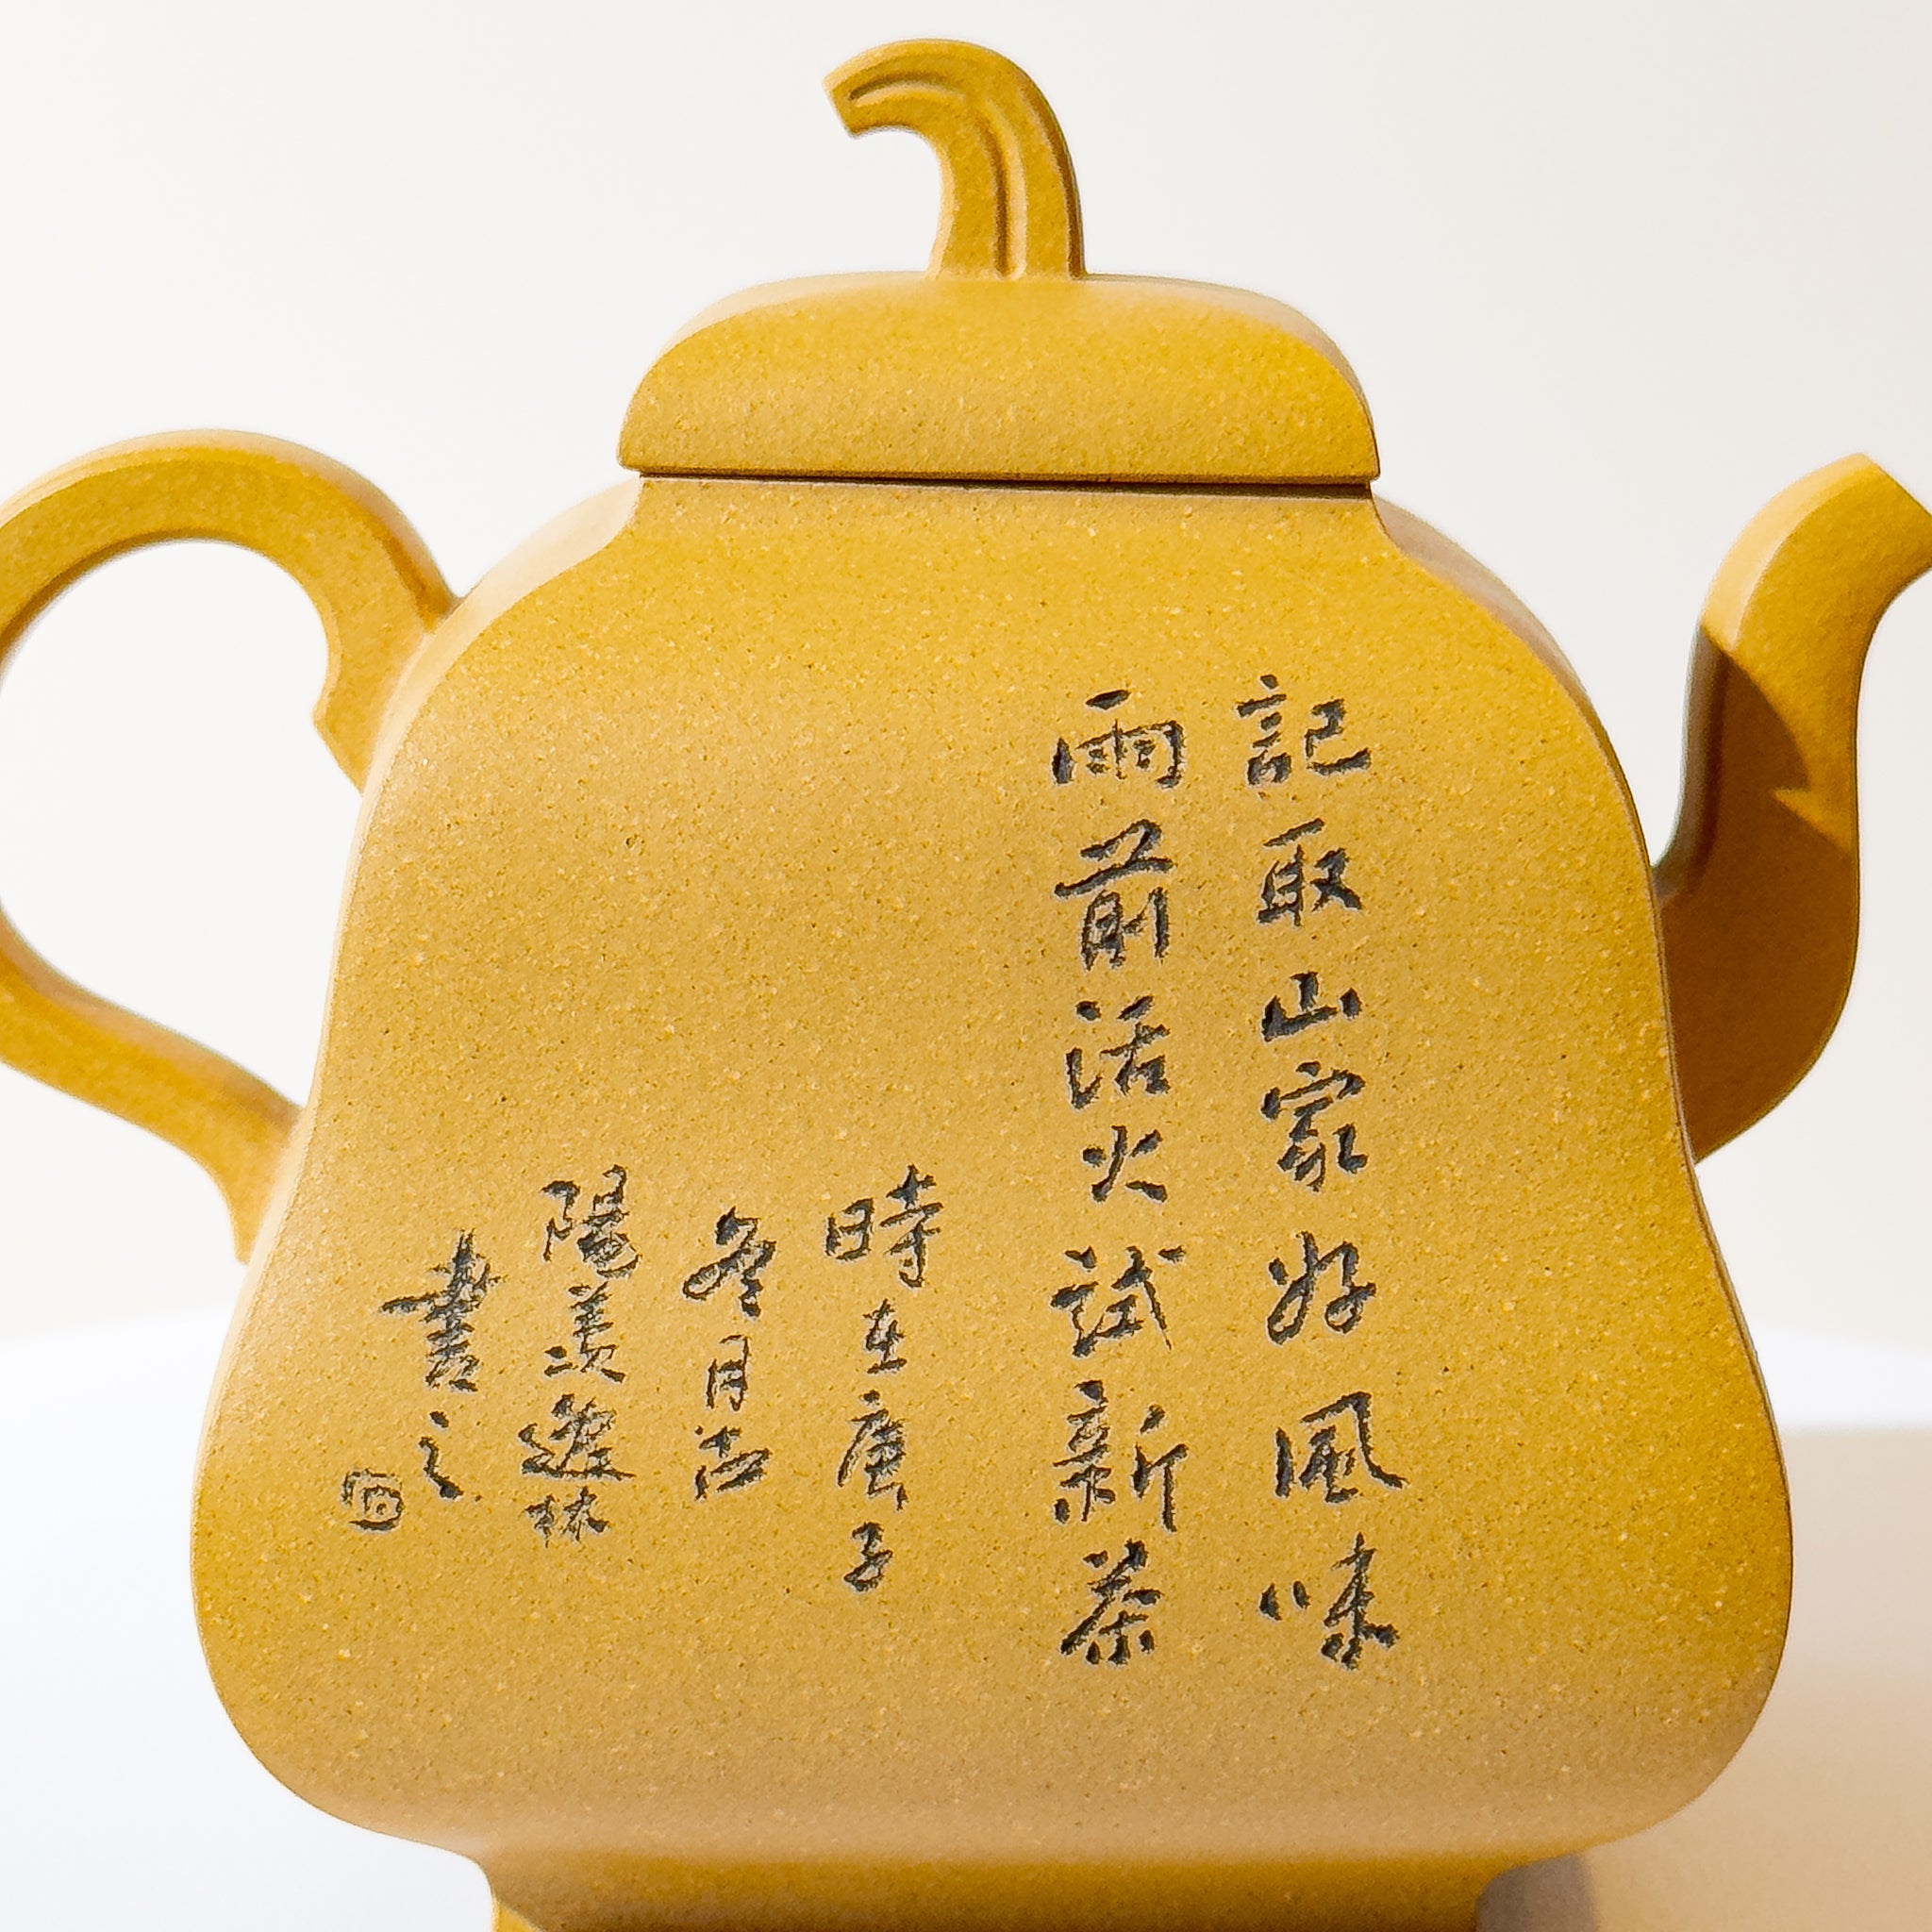 記取山家好風味
雨前活火試新茶
時在庚子
冬月於
陽羨逸林
書之